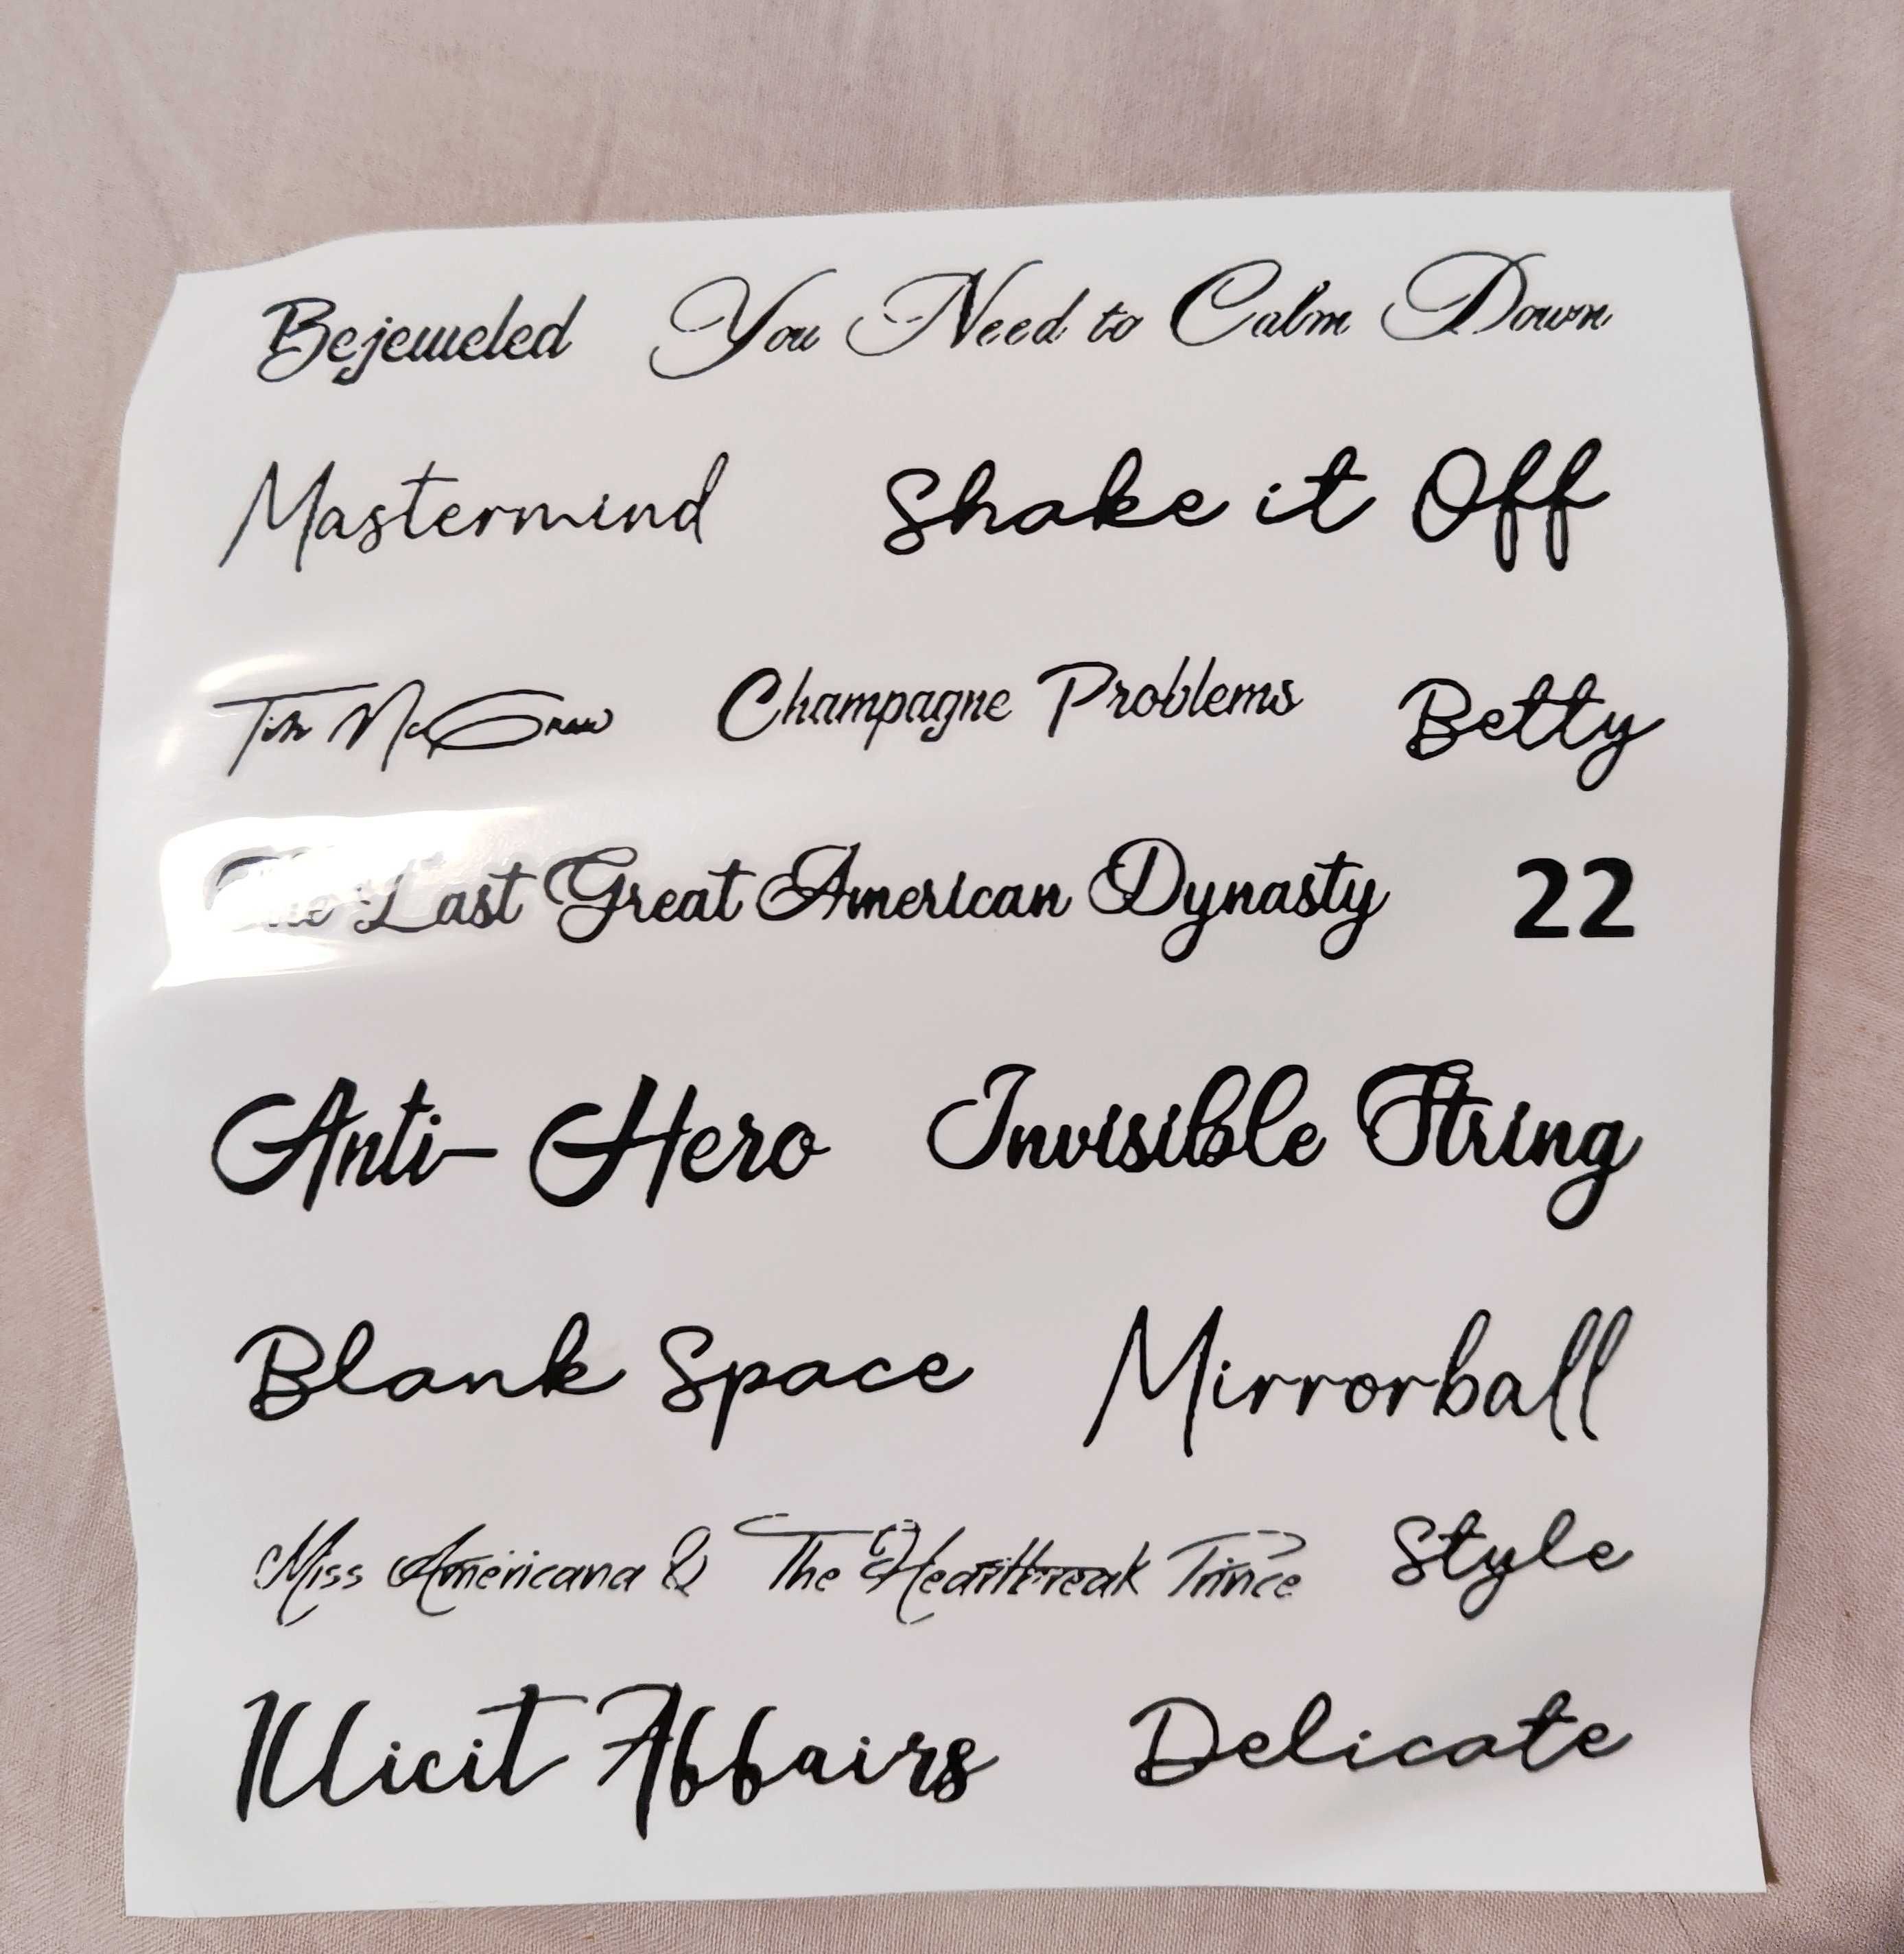 Bejeweled You Need to Calm Down
Mastermind Shake it Off
Tim McGraw Champagne Problems Betty
The Last Great American Dynasty 22
Anti-Hero Invisible String
Blank Space Mirrorball
Miss Americana & The Heartbreak Prince Style
Illicit Affairs Delicate